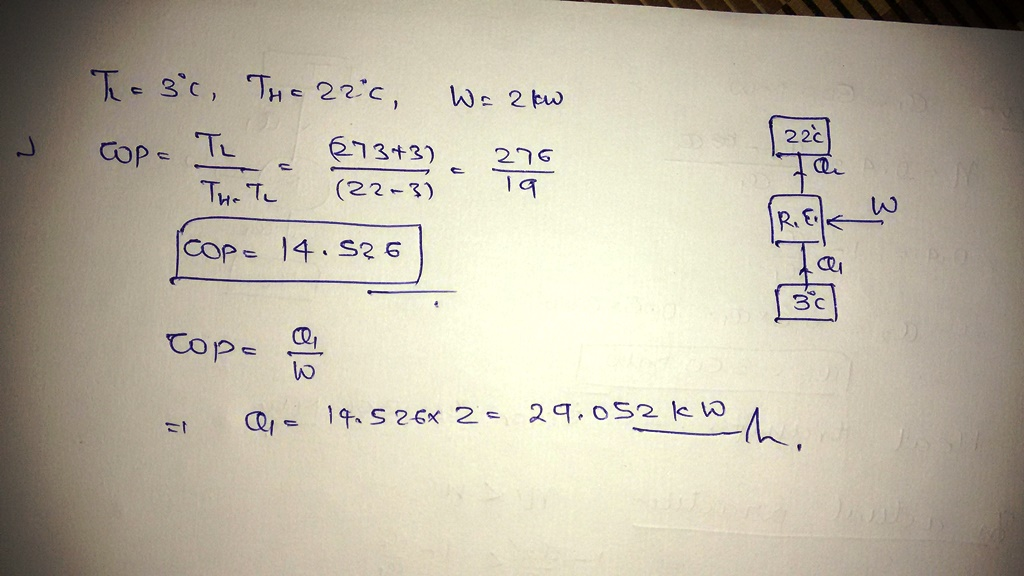 TL = 3°C, TH = 22°C, W = 2 kW
COP = TL / (TH - TL) = (273+3) / (22-3) = 276 / 19
COP = 14.526
COP = Q1 / W
=> Q1 = 14.526 x 2 = 29.052 kW
22°C
Q2
R.E. ← W
Q1
3°C